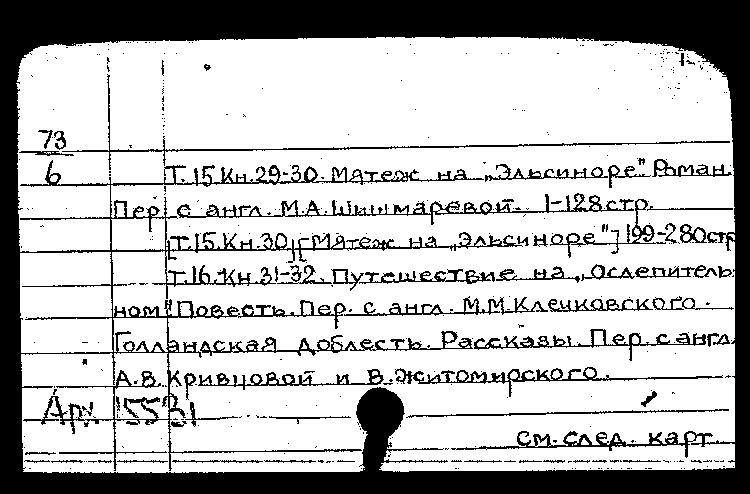 73
6
Т.15.Кн.29-30. Мятеж на „Эльсиноре". Роман.
Пер. с англ. М.А. Шишмаревой. 1-128 стр.
[Т.15.Кн.30] [Мятеж на „Эльсиноре"] 199-280 стр
Т.16.Кн.31-32. Путешествие на „Ослепитель-
ном" Повесть. Пер. с англ. М.М. Клечковского.
Голландская доблесть. Рассказы. Пер. с англ.
А.В. Кривцовой и В. Житомирского.
Арх 15531
см. след. карт.